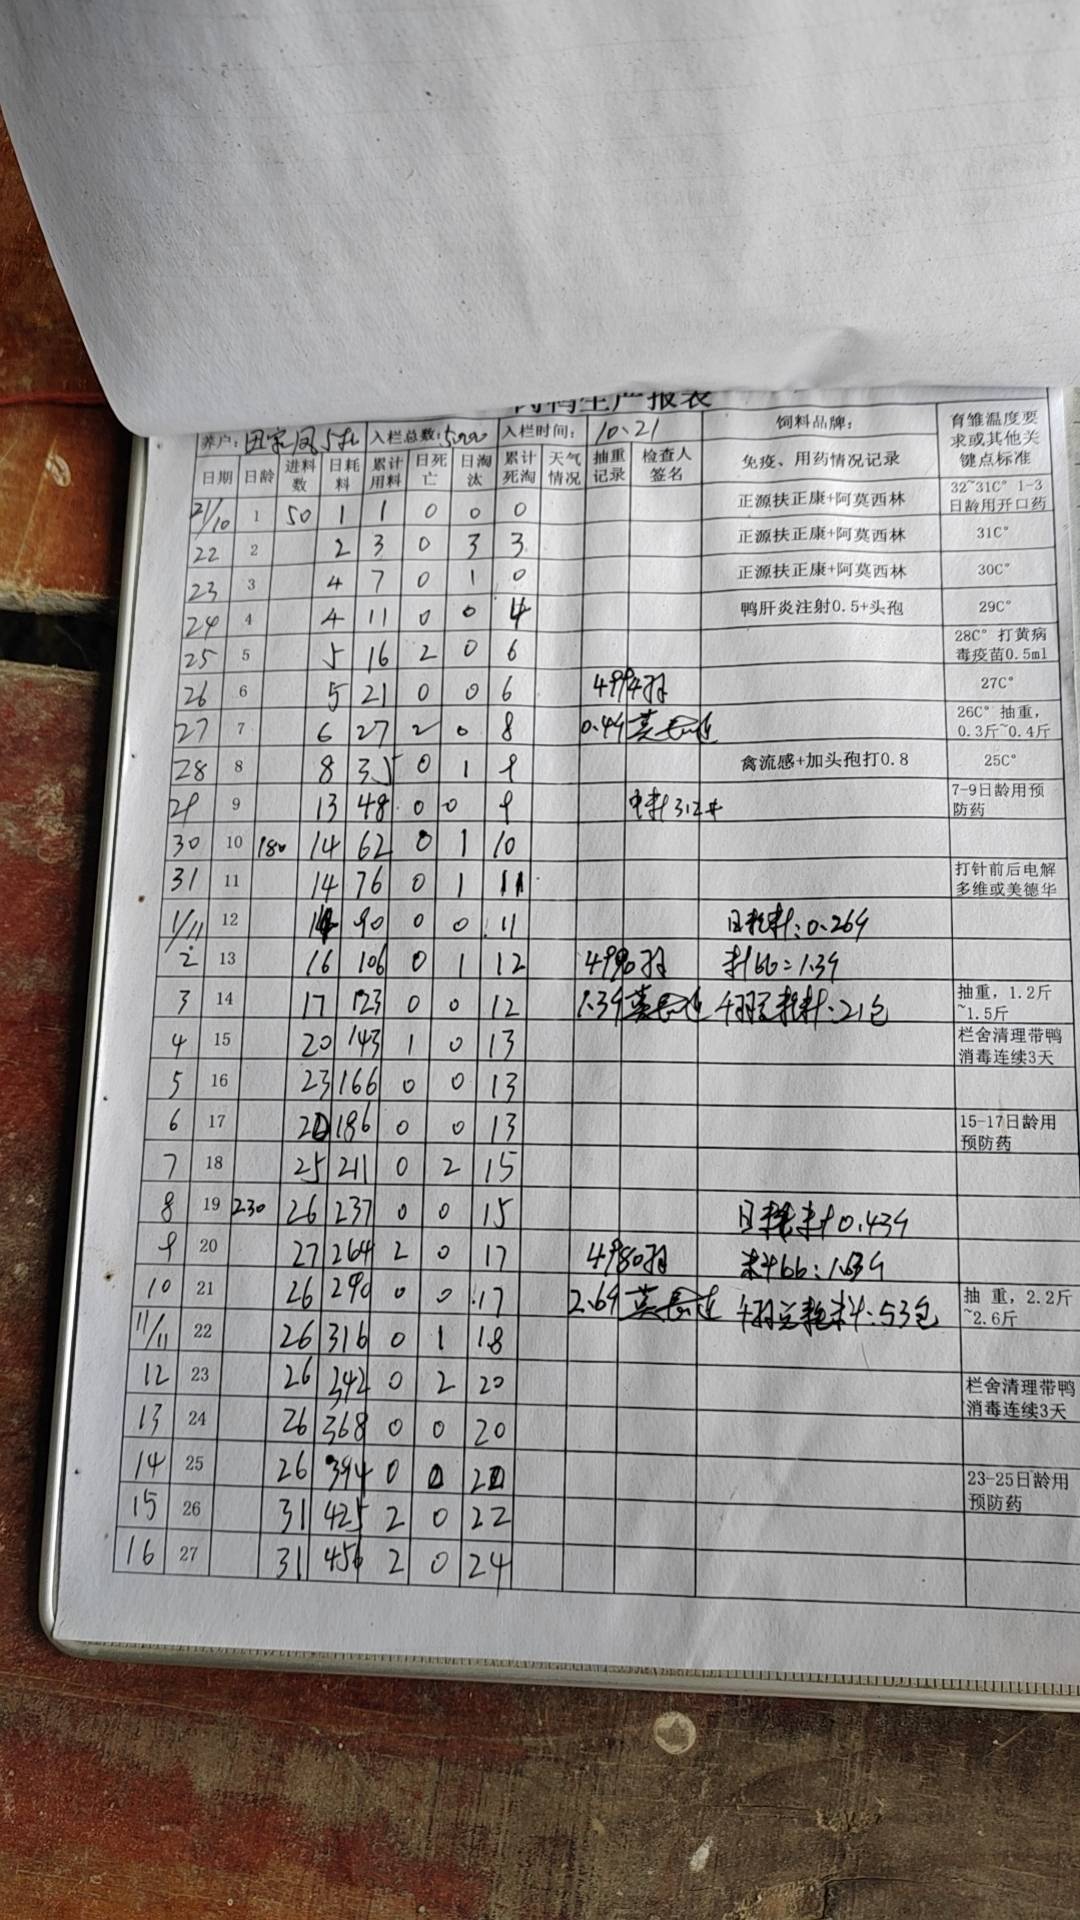 肉鸭生产报表
养户: 田家凤5批 入栏总数:5000 入栏时间: 10.21 饲料品牌: 育雏温度要求或其他关键点标准
日期 日龄 进料数 日耗料 累计用料 日死亡 日淘汰 累计死淘 天气情况 抽重记录 检查人签名 免疫、用药情况记录
21/10 1 50 1 1 0 0 0 正源扶正康+阿莫西林 32~31C° 1-3日龄用开口药
22 2 2 3 0 3 3 正源扶正康+阿莫西林 31C°
23 3 4 7 0 1 0 正源扶正康+阿莫西林 30C°
24 4 4 11 0 0 4 鸭肝炎注射0.5+头孢 29C°
25 5 5 16 2 0 6 28C° 打黄病毒疫苗0.5ml
26 6 5 21 0 0 6 4994羽 27C°
27 7 6 27 2 0 8 26C° 抽重,0.3斤~0.4斤
28 8 8 35 0 1 9 禽流感+加头孢打0.8 25C°
29 9 13 48 0 0 9 7-9日龄用预防药
30 10 180 14 62 0 1 10
31 11 14 76 0 1 11 打针前后电解多维或美德华
1/11 12 14 90 0 0 11 日耗料:0.264
2 13 16 106 0 1 12 4990羽 料比:1.34
3 14 17 123 0 0 12 千羽总耗料:21包 抽重,1.2斤~1.5斤
4 15 20 143 1 0 13 栏舍清理带鸭消毒连续3天
5 16 23 166 0 0 13
6 17 20 186 0 0 13 15-17日龄用预防药
7 18 25 211 0 2 15
8 19 230 26 237 0 0 15 日耗料0.434
9 20 27 264 2 0 17 4980羽 料比:1.634
10 21 26 290 0 0 17 千羽总耗料:53包 抽 重,2.2斤~2.6斤
11/11 22 26 316 0 1 18
12 23 26 342 0 2 20 栏舍清理带鸭消毒连续3天
13 24 26 368 0 0 20
14 25 26 394 0 0 20 23-25日龄用预防药
15 26 31 425 2 0 22
16 27 31 456 2 0 24